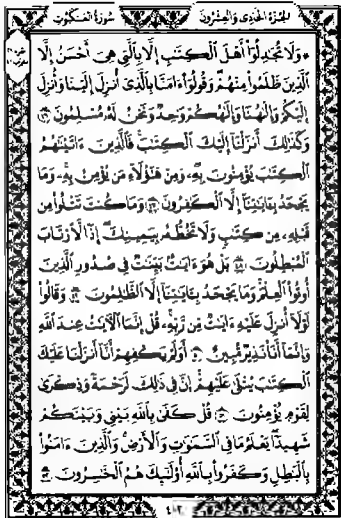 الجزء الحادي والعشرون سورة العنكبوت
۞ وَلَا تُجَٰدِلُوٓا۟ أَهْلَ ٱلْكِتَٰبِ إِلَّا بِٱلَّتِى هِىَ أَحْسَنُ إِلَّا
ٱلَّذِينَ ظَلَمُوا۟ مِنْهُمْ وَقُولُوٓا۟ ءَامَنَّا بِٱلَّذِىٓ أُنزِلَ إِلَيْنَا وَأُنزِلَ
إِلَيْكُمْ وَإِلَٰهُنَا وَإِلَٰهُكُمْ وَٰحِدٌ وَنَحْنُ لَهُۥ مُسْلِمُونَ ٤٦
وَكَذَٰلِكَ أَنزَلْنَآ إِلَيْكَ ٱلْكِتَٰبَ فَٱلَّذِينَ ءَاتَيْنَٰهُمُ
ٱلْكِتَٰبَ يُؤْمِنُونَ بِهِۦ وَمِنْ هَٰٓؤُلَآءِ مَن يُؤْمِنُ بِهِۦ وَمَا
يَجْحَدُ بِـَٔايَٰتِنَآ إِلَّا ٱلْكَٰفِرُونَ ٤٧ وَمَا كُنتَ تَتْلُوا۟ مِن
قَبْلِهِۦ مِن كِتَٰبٍ وَلَا تَخُطُّهُۥ بِيَمِينِكَ إِذًا لَّٱرْتَابَ
ٱلْمُبْطِلُونَ ٤٨ بَلْ هُوَ ءَايَٰتٌۢ بَيِّنَٰتٌ فِى صُدُورِ ٱلَّذِينَ
أُوتُوا۟ ٱلْعِلْمَ وَمَا يَجْحَدُ بِـَٔايَٰتِنَآ إِلَّا ٱلظَّٰلِمُونَ ٤٩ وَقَالُوا۟
لَوْلَآ أُنزِلَ عَلَيْهِ ءَايَٰتٌ مِّن رَّبِّهِۦ قُلْ إِنَّمَا ٱلْءَايَٰتُ عِندَ ٱللَّهِ
وَإِنَّمَآ أَنَا۠ نَذِيرٌ مُّبِينٌ ٥٠ أَوَلَمْ يَكْفِهِمْ أَنَّآ أَنزَلْنَا عَلَيْكَ
ٱلْكِتَٰبَ يُتْلَىٰ عَلَيْهِمْ إِنَّ فِى ذَٰلِكَ لَرَحْمَةً وَذِكْرَىٰ
لِقَوْمٍ يُؤْمِنُونَ ٥١ قُلْ كَفَىٰ بِٱللَّهِ بَيْنِى وَبَيْنَكُمْ
شَهِيدًا يَعْلَمُ مَا فِى ٱلسَّمَٰوَٰتِ وَٱلْأَرْضِ وَٱلَّذِينَ ءَامَنُوا۟
بِٱلْبَٰطِلِ وَكَفَرُوا۟ بِٱللَّهِ أُو۟لَٰٓئِكَ هُمُ ٱلْخَٰسِرُونَ ٥٢
٤٠٢